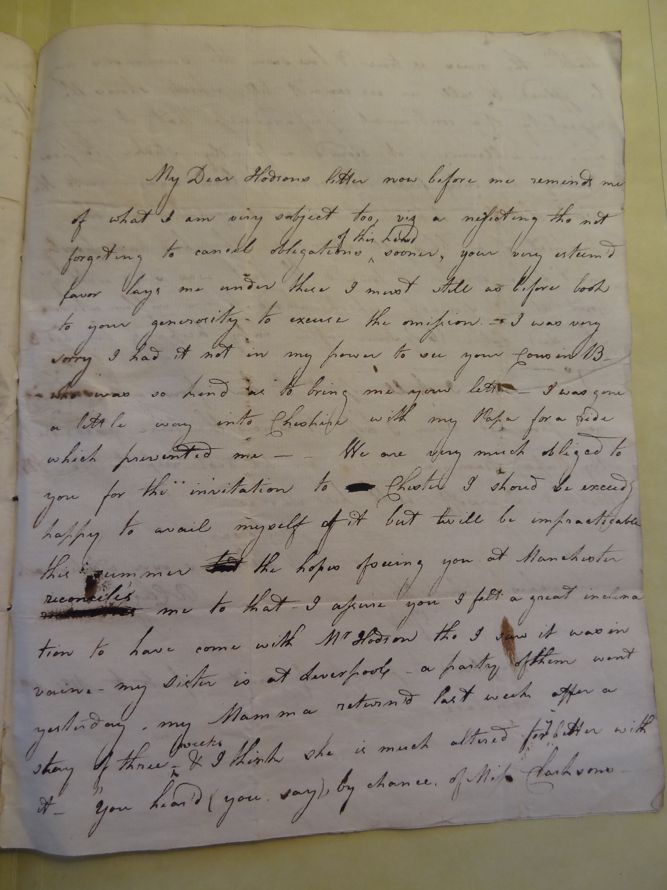 My Dear Hodsons letter now before me reminds me
of what I am very subject too, viz a neglecting tho not
forgeting to cancel obligations of this kind sooner, your very esteem'd
favor lays me under these I must still as before look
to your generosity - to excuse the omission - I was very
sorry I had it not in my power to see your Cousin B-
who was so kind as to bring me your letter - I was gone
a little way into Cheshire with my Papa for a ride
which prevented me - - We are very much obliged to
you for the invitation to Chester I should be exceedg
happy to avail myself of it but twill be impracticable
this summer the hopes of seeing you at Manchester
reconciles me to that - I assure you I felt a great inclina
tion to have come with Mr Hodson tho I saw it was in
vain - my sister is at Liverpool - a party of them went
yesterday - my Mamma return'd last week after a
stay of three weeks & I think she is much altered for ye better with
it - You heard (you say) by chance of Miss Clarksons